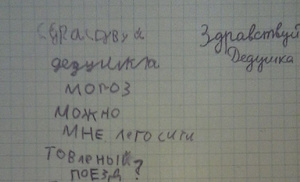 дедушка
мороз
можно
мне лего сити
товарный
поезд?
Здравствуй
Дедушка